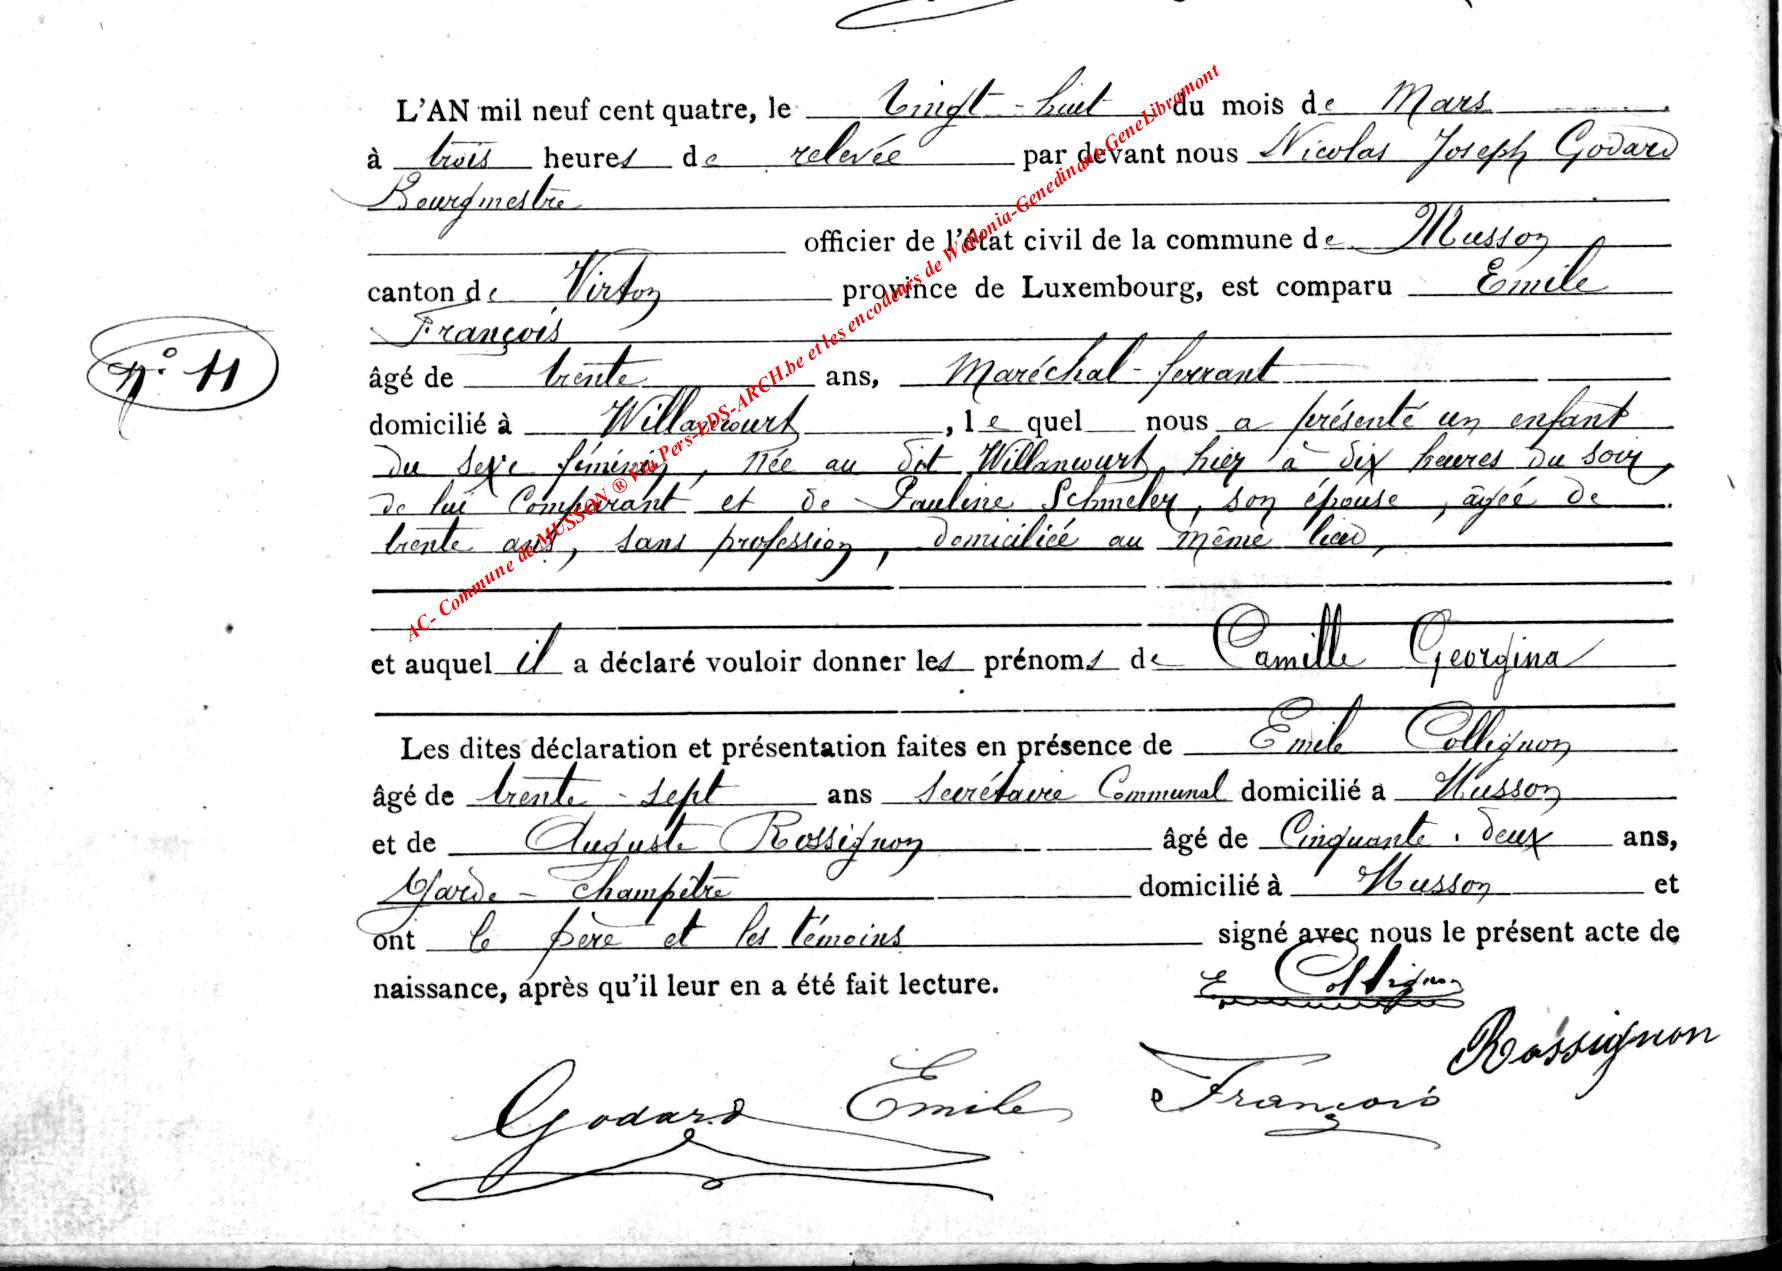 L'AN mil neuf cent quatre, le Vingt-huit du mois de Mars
à trois heures de relevée par devant nous Nicolas Joseph Godard
Bourgmestre
officier de l'état civil de la commune de Musson
canton de Virton province de Luxembourg, est comparu Emile
François
n° 11
âgé de trente ans, Maréchal-ferrant
domicilié à Willancourt, lequel nous a présenté un enfant
du sexe féminin, née au dit Willancourt, hier à dix heures du soir,
de lui Comparant et de Pauline Schmeler, son épouse, âgée de
trente ans, sans profession, domiciliée au même lieu,
et auquel il a déclaré vouloir donner les prénoms de Camille Georgina
Les dites déclaration et présentation faites en présence de Emile Collignon
âgé de trente-sept ans secrétaire Communal domicilié a Musson
et de Auguste Rossignon âgé de Cinquante-deux ans,
Garde-champêtre domicilié à Musson et
ont le père et les témoins signé avec nous le présent acte de
naissance, après qu'il leur en a été fait lecture.
E Collignon
Rossignon
Godard Emile François
AC- Commune de MUSSON ® Via Pers-LDS-ARCH.be et les encodeurs de Wallonia-Genedinant-GeneLibramont